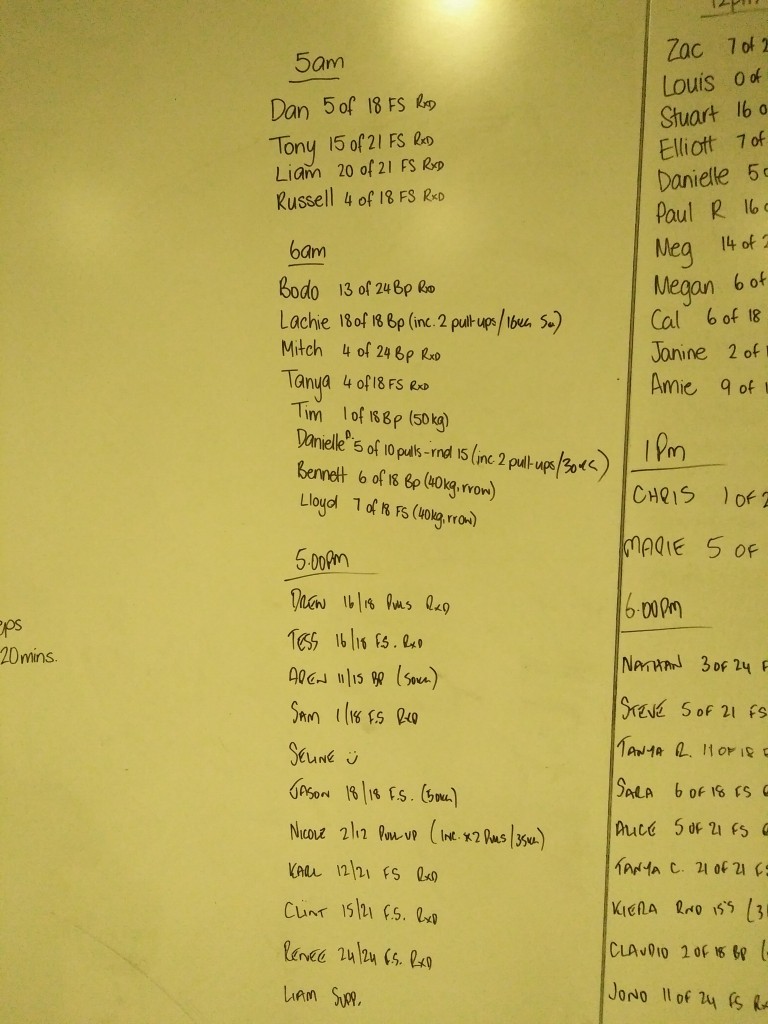 5am
Dan 5 of 18 FS RxD
Tony 15 of 21 FS RxD
Liam 20 of 21 FS RxD
Russell 4 of 18 FS RxD
6am
Bodo 13 of 24 Bp RxD
Lachie 18 of 18 Bp (inc. 2 pull-ups/16kg
Mitch 4 of 24 Bp RxD
Tanya 4 of 18 FS RxD
Tim 1 of 18 Bp (50kg)
Danielle D. 5 of 10 pulls-rnd 15 (inc. 2 pull-ups/30kg)
Bennett 6 of 18 Bp (40kg, rrow)
Lloyd 7 of 18 FS (40kg, rrow)
5.00pm
DREW 16/18 PULLS RxD
TESS 16/18 F.S. RxD
AREN 11/15 BP (50KG)
SAM 1/18 F.S RxD
SELINE
JASON 18/18 F.S. (50KG)
NICOLE 2/12 PULL-UP (INC. x2 PULLS/35KG)
KARL 12/21 FS RxD
CLINT 15/21 F.S. RxD
RENEE 24/24 F.S. RxD
LIAM SUPP.
ps
20mins.
12pm
Zac 7 of 2
Louis 0 of
Stuart 16 o
Elliott 7 of
Danielle 5 o
Paul R 16 o
Meg 14 of 2
Megan 6 of
Cal 6 of 18
Janine 2 of 1
Amie 9 of 1
1pm
CHRIS 1 OF 2
MARIE 5 OF
6.00pm
NATHAN 3 OF 24 F
STEVE 5 OF 21 FS
TANYA R. 11 OF 18
SARA 6 OF 18 FS
ALICE 5 OF 21 FS
TANYA C. 21 OF 21 FS
KIERA RND 15'S (3
CLAUDIO 2 OF 18 BP (
JONO 11 OF 24 FS Rx